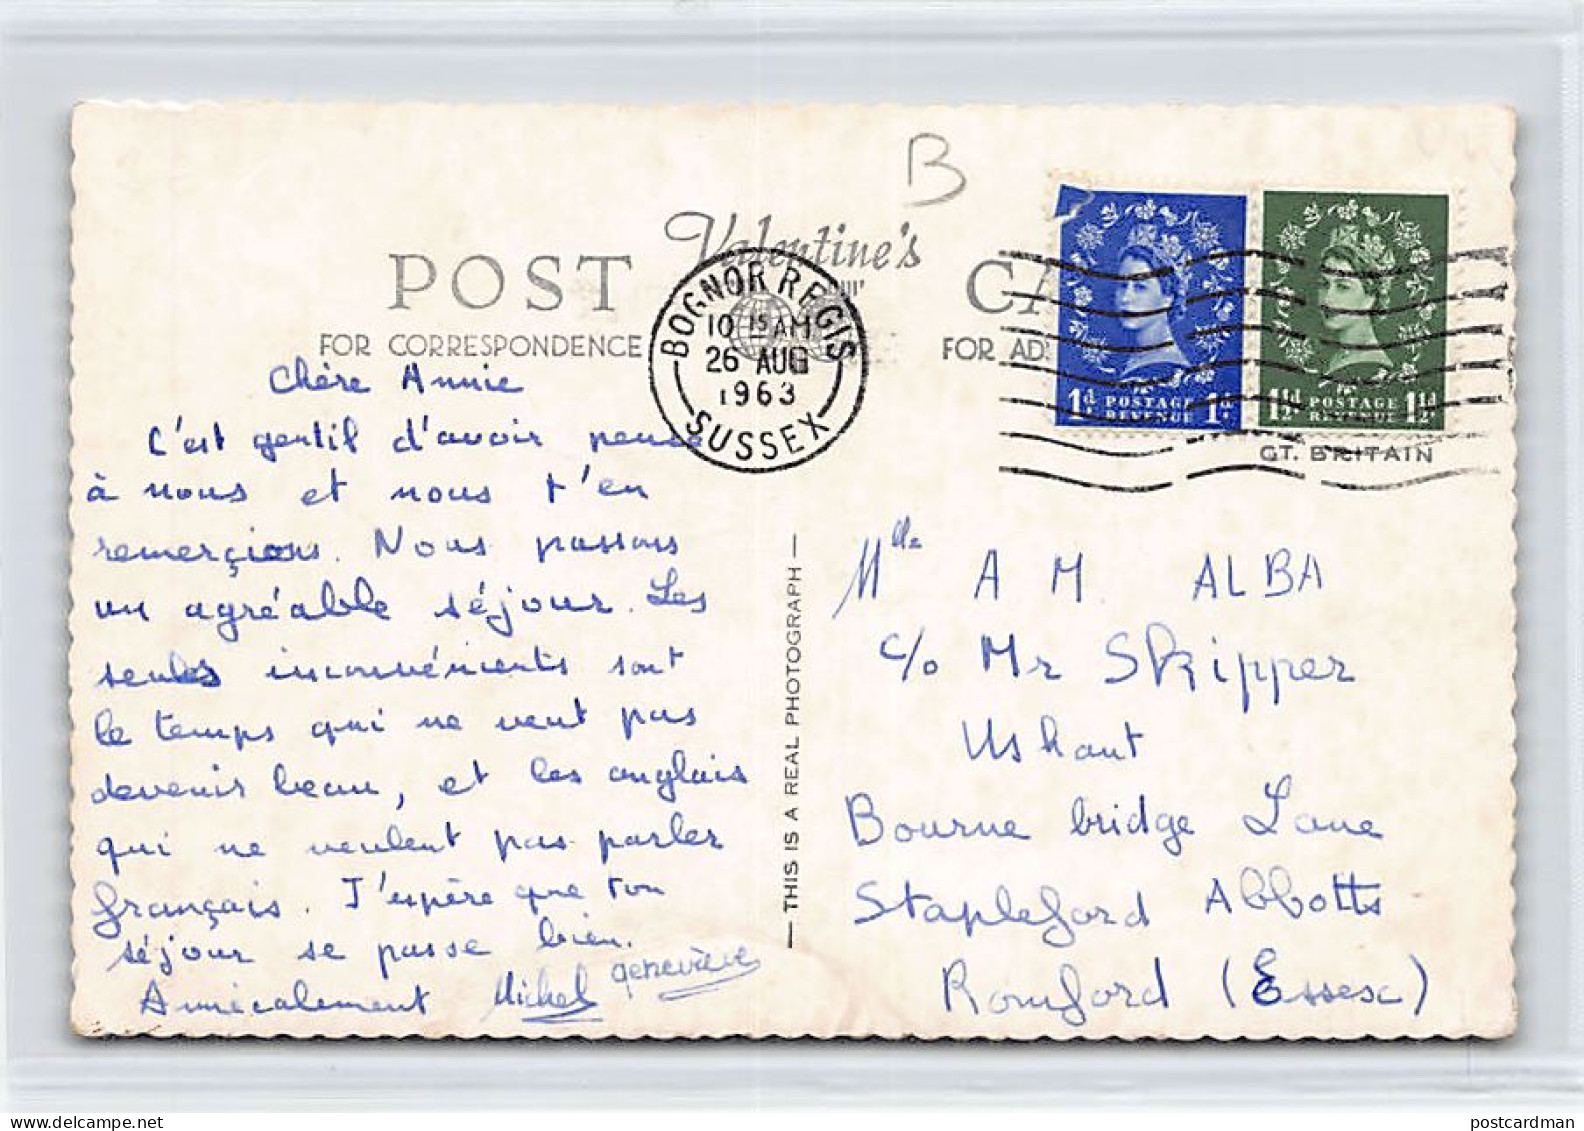 B
Valentine's
POST CA
FOR CORRESPONDENCE
FOR AD
BOGNOR REGIS
10 15 AM
26 AUG
1963
SUSSEX
1d POSTAGE REVENUE 1d
1½d POSTAGE REVENUE 1½d
GT. BRITAIN
Chère Annie
C'est gentil d'avoir pensé
à nous et nous t'en
remerçions. Nous passons
un agréable séjour. Les
seules inconvénients sont
le temps qui ne veut pas
devenir beau, et les anglais
qui ne veulent pas parler
français. J'espère que ton
séjour se passe bien.
Amicalement Michel geneviève
— THIS IS A REAL PHOTOGRAPH —
Mlle A M. ALBA
c/o Mr Skipper
Ushant
Bourne bridge Lane
Stapleford Abbotts
Romford (Essex)
postcardman